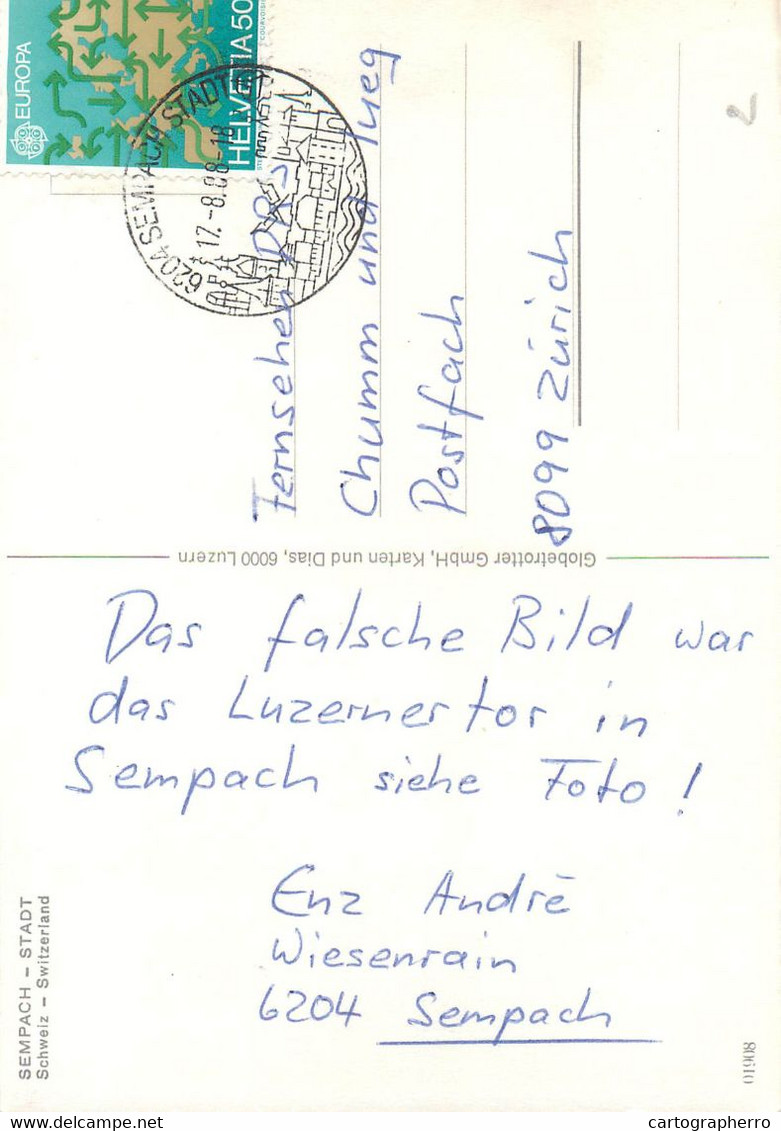 EUROPA
HELVETIA 50
COURVOISIER
6204 SEMPACH STADT
17.-8.88-18
Fernsehen DRS
Chumm und lueg
Postfach
8099 Zürich
Globetrotter GmbH, Karten und Dias, 6000 Luzern
Das falsche Bild war
das Luzernertor in
Sempach siehe Foto !
Enz Andrè
Wiesenrain
6204 Sempach
SEMPACH – STADT
Schweiz – Switzerland
01908
2
delcampe.net
cartographerro